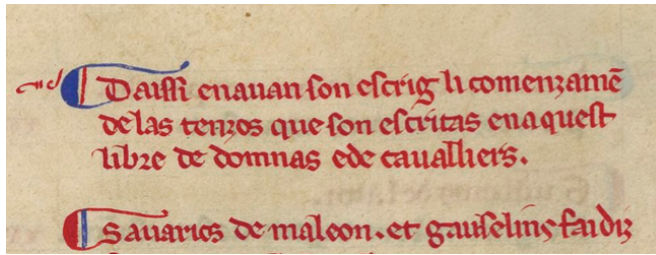 Daissi enauan son escrig li comenzamē
de las tenzos que son escritas enaquest
libre de domnas ede caualliers.
Sauarics de maleon. et gauselins faidiz